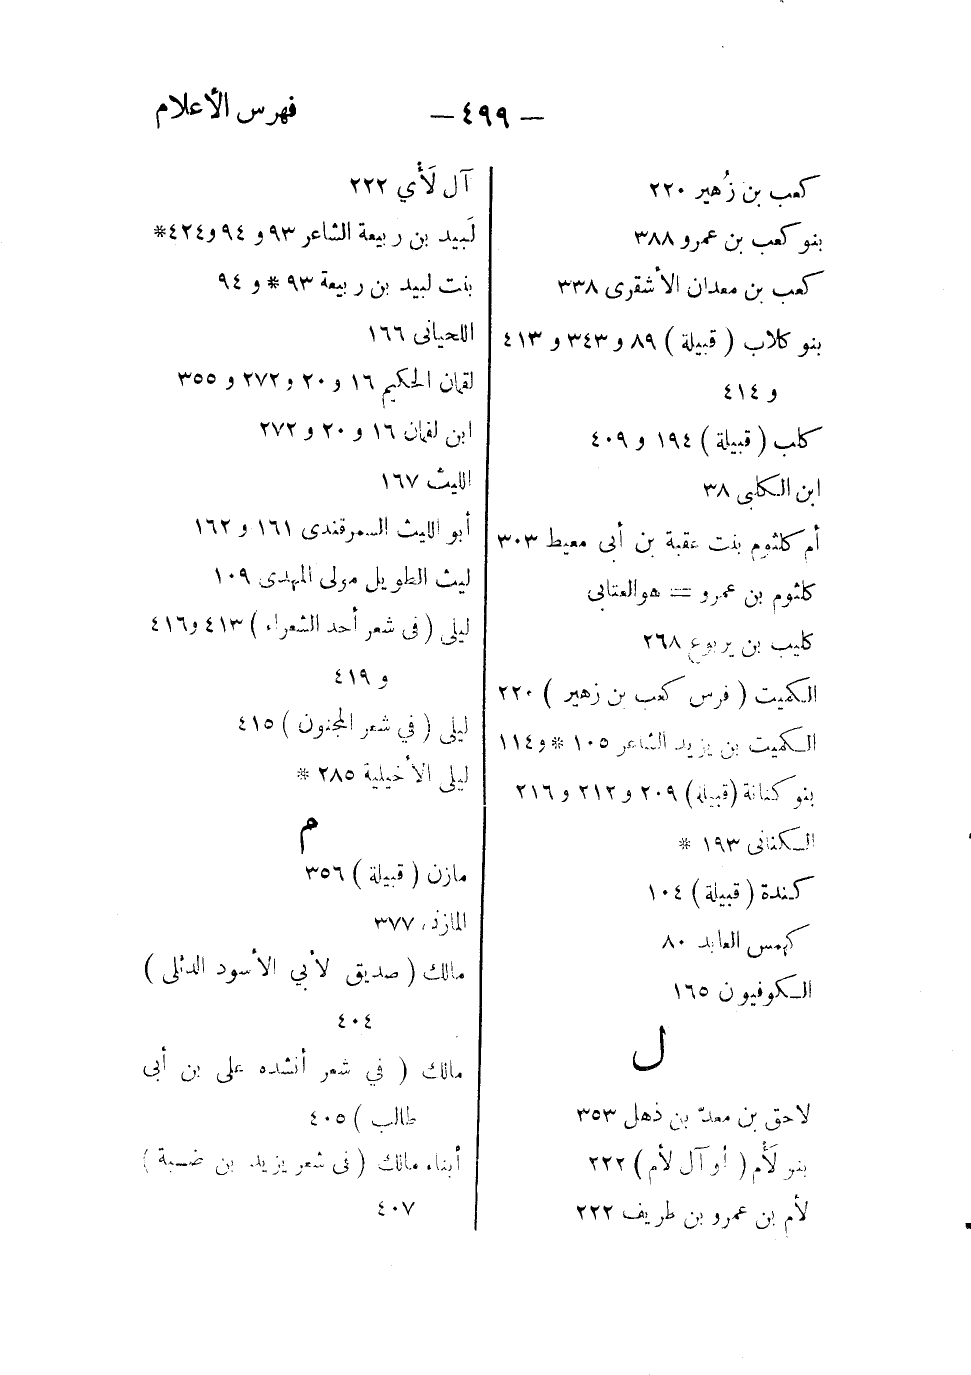 فهرس الأعلام
— ٤٩٩ —
كعب بن زُهير ٢٢٠
بنو كعب بن عمرو ٣٨٨
كعب بن معدان الأشقرى ٣٣٨
بنو كلاب ( قبيلة ) ٨٩ و ٣٤٣ و ٤١٣
و ٤١٤
كلب ( قبيلة ) ١٩٤ و ٤٠٩
ابن الكلبى ٣٨
أم كلثوم بنت عقبة بن أبى معيط ٣٠٣
كلثوم بن عمرو = هو العتابى
كليب بن يربوع ٢٦٨
الكميت ( فرس كعب بن زهير ) ٢٢٠
الكميت بن يزيد الشاعر ١٠٥ * و ١١٤
بنو كنانة (قبيلة) ٢٠٩ و ٢١٢ و ٢١٦
الكنانى ١٩٣ *
كندة ( قبيلة ) ١٠٤
كهمس العابد ٨٠
الكوفيون ١٦٥
ل
لاحق بن معدّ بن ذهل ٣٥٣
بنو لَأْم ( أو آل لأم ) ٢٢٢
لأم بن عمرو بن طريف ٢٢٢
آل لَأْي ٢٢٢
لَبيد بن ربيعة الشاعر ٩٣ و ٩٤ و٤٢٤*
بنت لبيد بن ربيعة ٩٣ * و ٩٤
اللحيانى ١٦٦
لقمان الحكيم ١٦ و ٢٠ و ٢٧٢ و ٣٥٥
ابن لقمان ١٦ و ٢٠ و ٢٧٢
الليث ١٦٧
أبو الليث السمرقندى ١٦١ و ١٦٢
ليث الطويل مولى المهدى ١٠٩
ليلى ( فى شعر أحد الشعراء ) ٤١٣ و٤١٦
و ٤١٩
ليلى ( في شعر المجنون ) ٤١٥
ليلى الأخيلية ٢٨٥ *
م
مازن ( قبيلة ) ٣٥٦
المازنى ٣٧٧
مالك ( صديق لأبي الأسود الدئلى )
٤٠٤
مالك ( في شعر أنشده على بن أبى
طالب ) ٤٠٥
أبناء مالك ( فى شعر يزيد بن ضبة )
٤٠٧